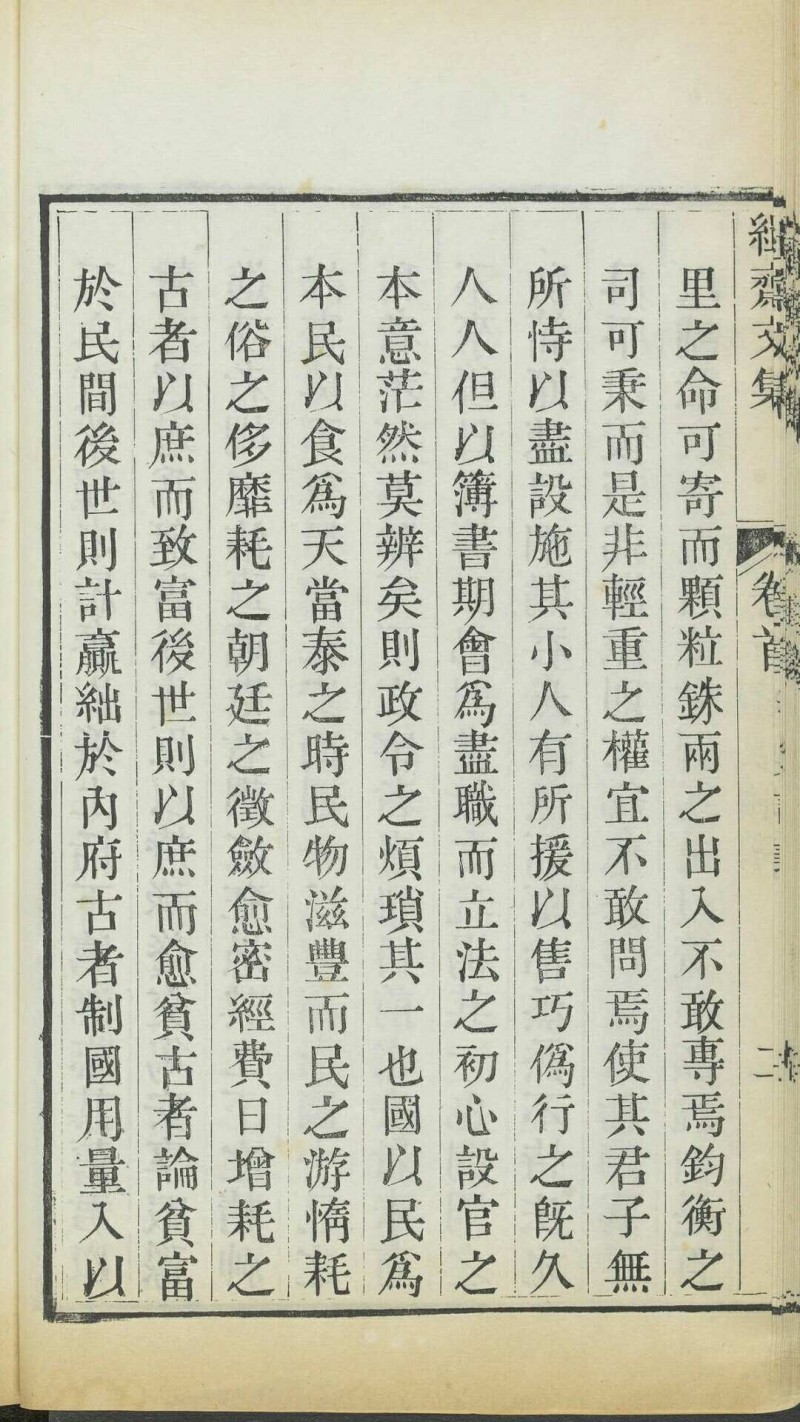 緝齋文集 卷首 二
里之命可寄而顆粒銖兩之出入不敢專焉鈞衡之
司可秉而是非輕重之權宜不敢問焉使其君子無
所恃以盡設施其小人有所援以售巧僞行之旣久
人人但以簿書期會爲盡職而立法之初心設官之
本意茫然莫辨矣則政令之煩瑣其一也國以民爲
本民以食爲天當泰之時民物滋豐而民之游惰耗
之俗之侈靡耗之朝廷之徵斂愈密經費日增耗之
古者以庶而致富後世則以庶而愈貧古者論貧富
於民間後世則計贏絀於內府古者制國用量入以